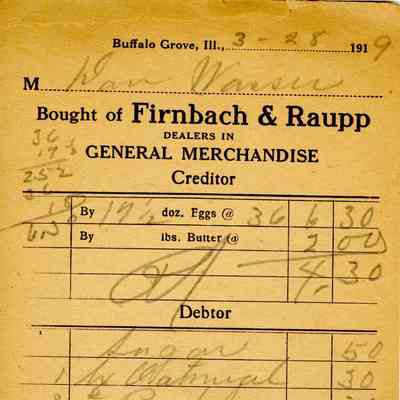 Buffalo Grove, Ill., 3-28 1919
M Dan Wasser
Bought of Firnbach & Raupp
DEALERS IN
GENERAL MERCHANDISE
Creditor
36
17½
252
36
18
By 17½ doz. Eggs @ 36 6 30
By lbs. Butter @ 2 00
4,30
Debtor
Sugar 50
1 bx Oatmeal 30